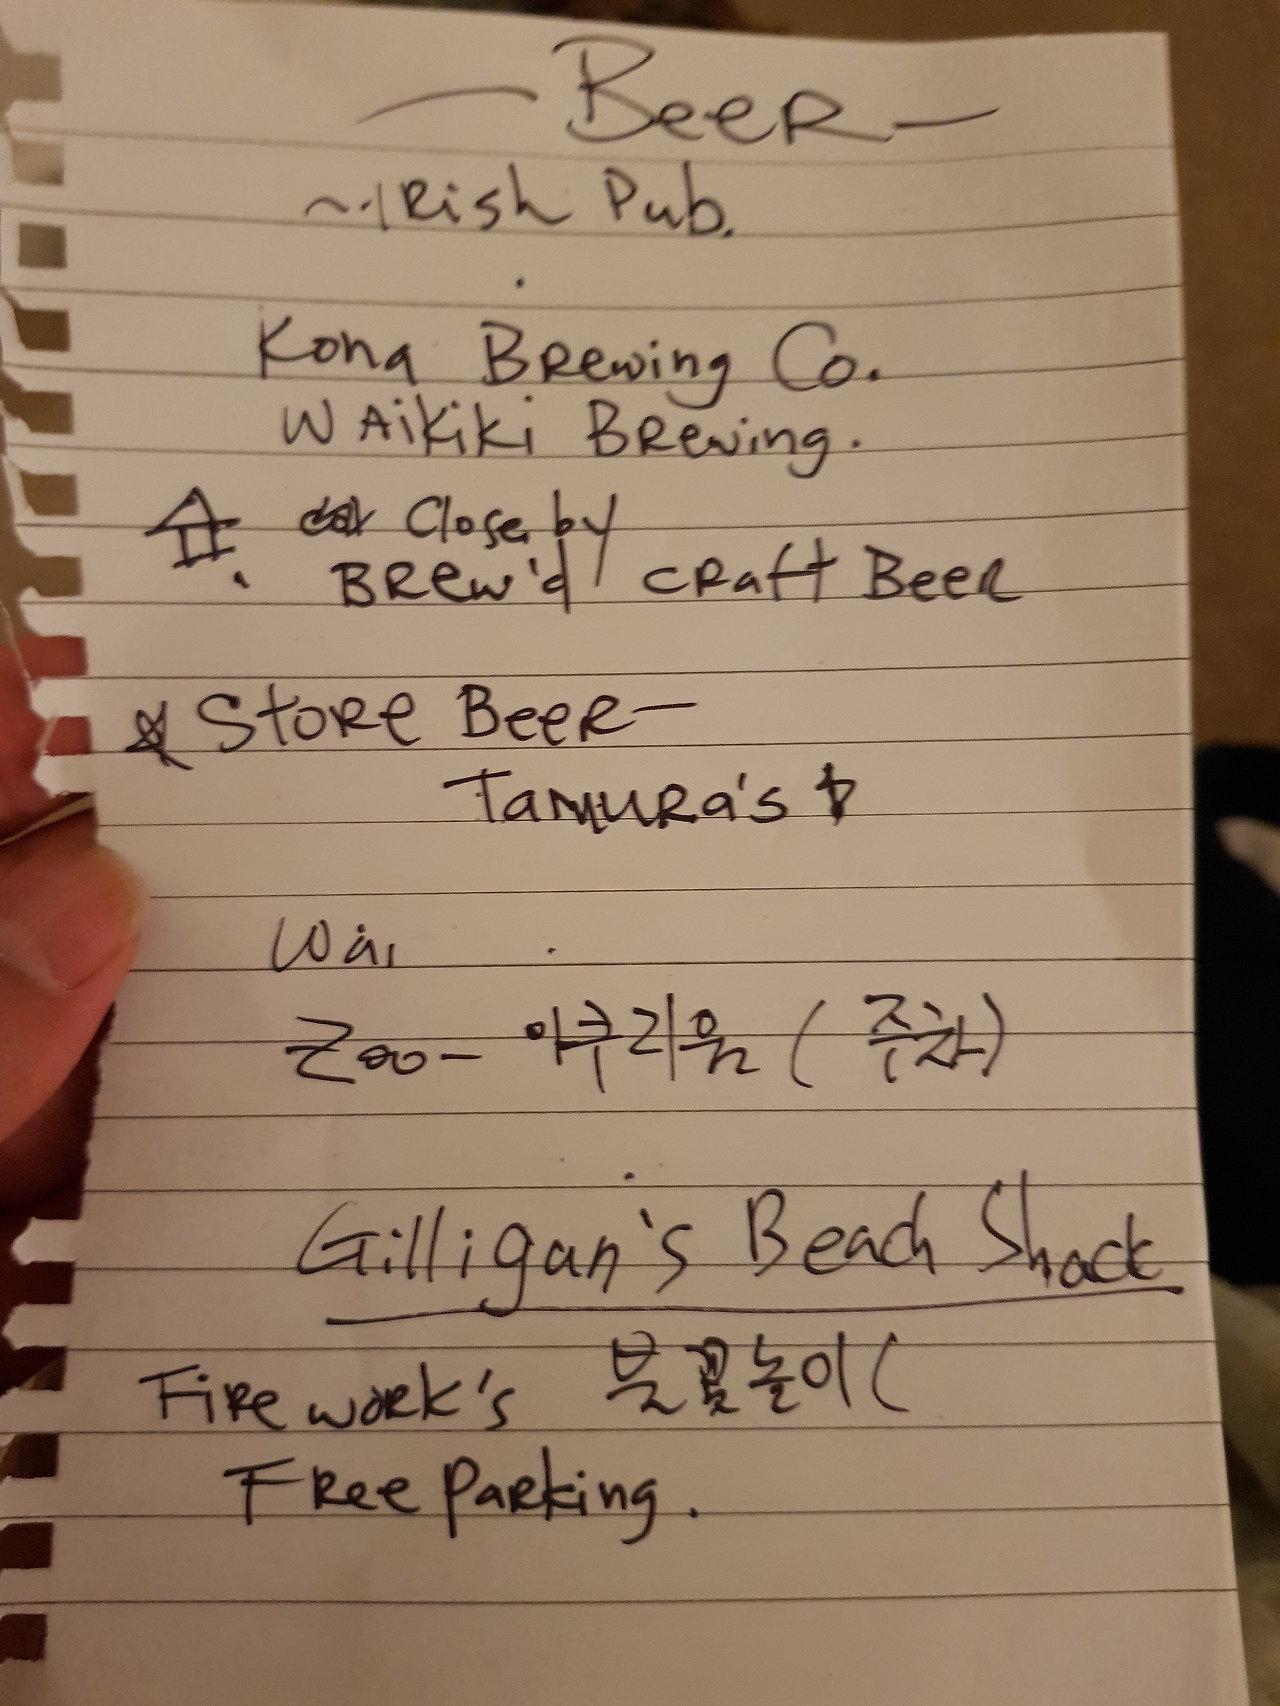 — BeeR —
~ IRish Pub.
Kona BRewing Co.
WAikiki BRewing.
Close by
BRew'd CRaft BeeR
StoRe BeeR —
TamuRa's
Wai
Zoo — 아쿠리움 (주차)
Gilligan's Beach Shack
FiRewoRk's 불꽃놀이 (
FRee PaRking.